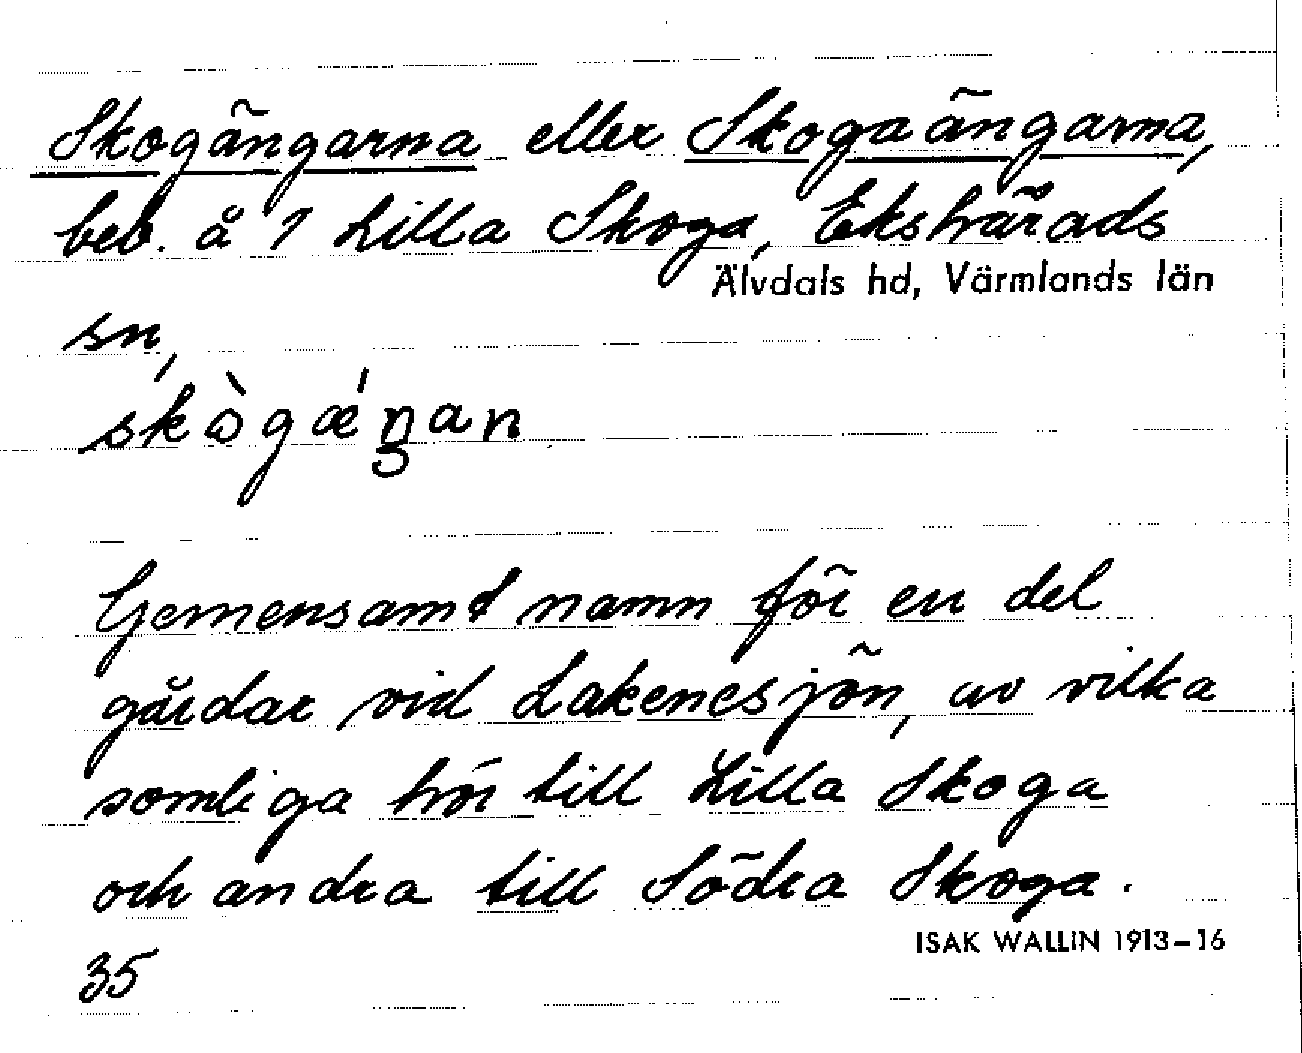 Skogängarna eller Skogaängarna,
beb. å 1 Lilla Skoga, Ekshärads
Älvdals hd, Värmlands län
sn,
skògǽŋan
Gemensamt namn för en del
gårdar vid Lakenesjön, av vilka
somliga hör till Lilla Skoga
och andra till Södra Skoga.
ISAK WALLIN 1913–16
35